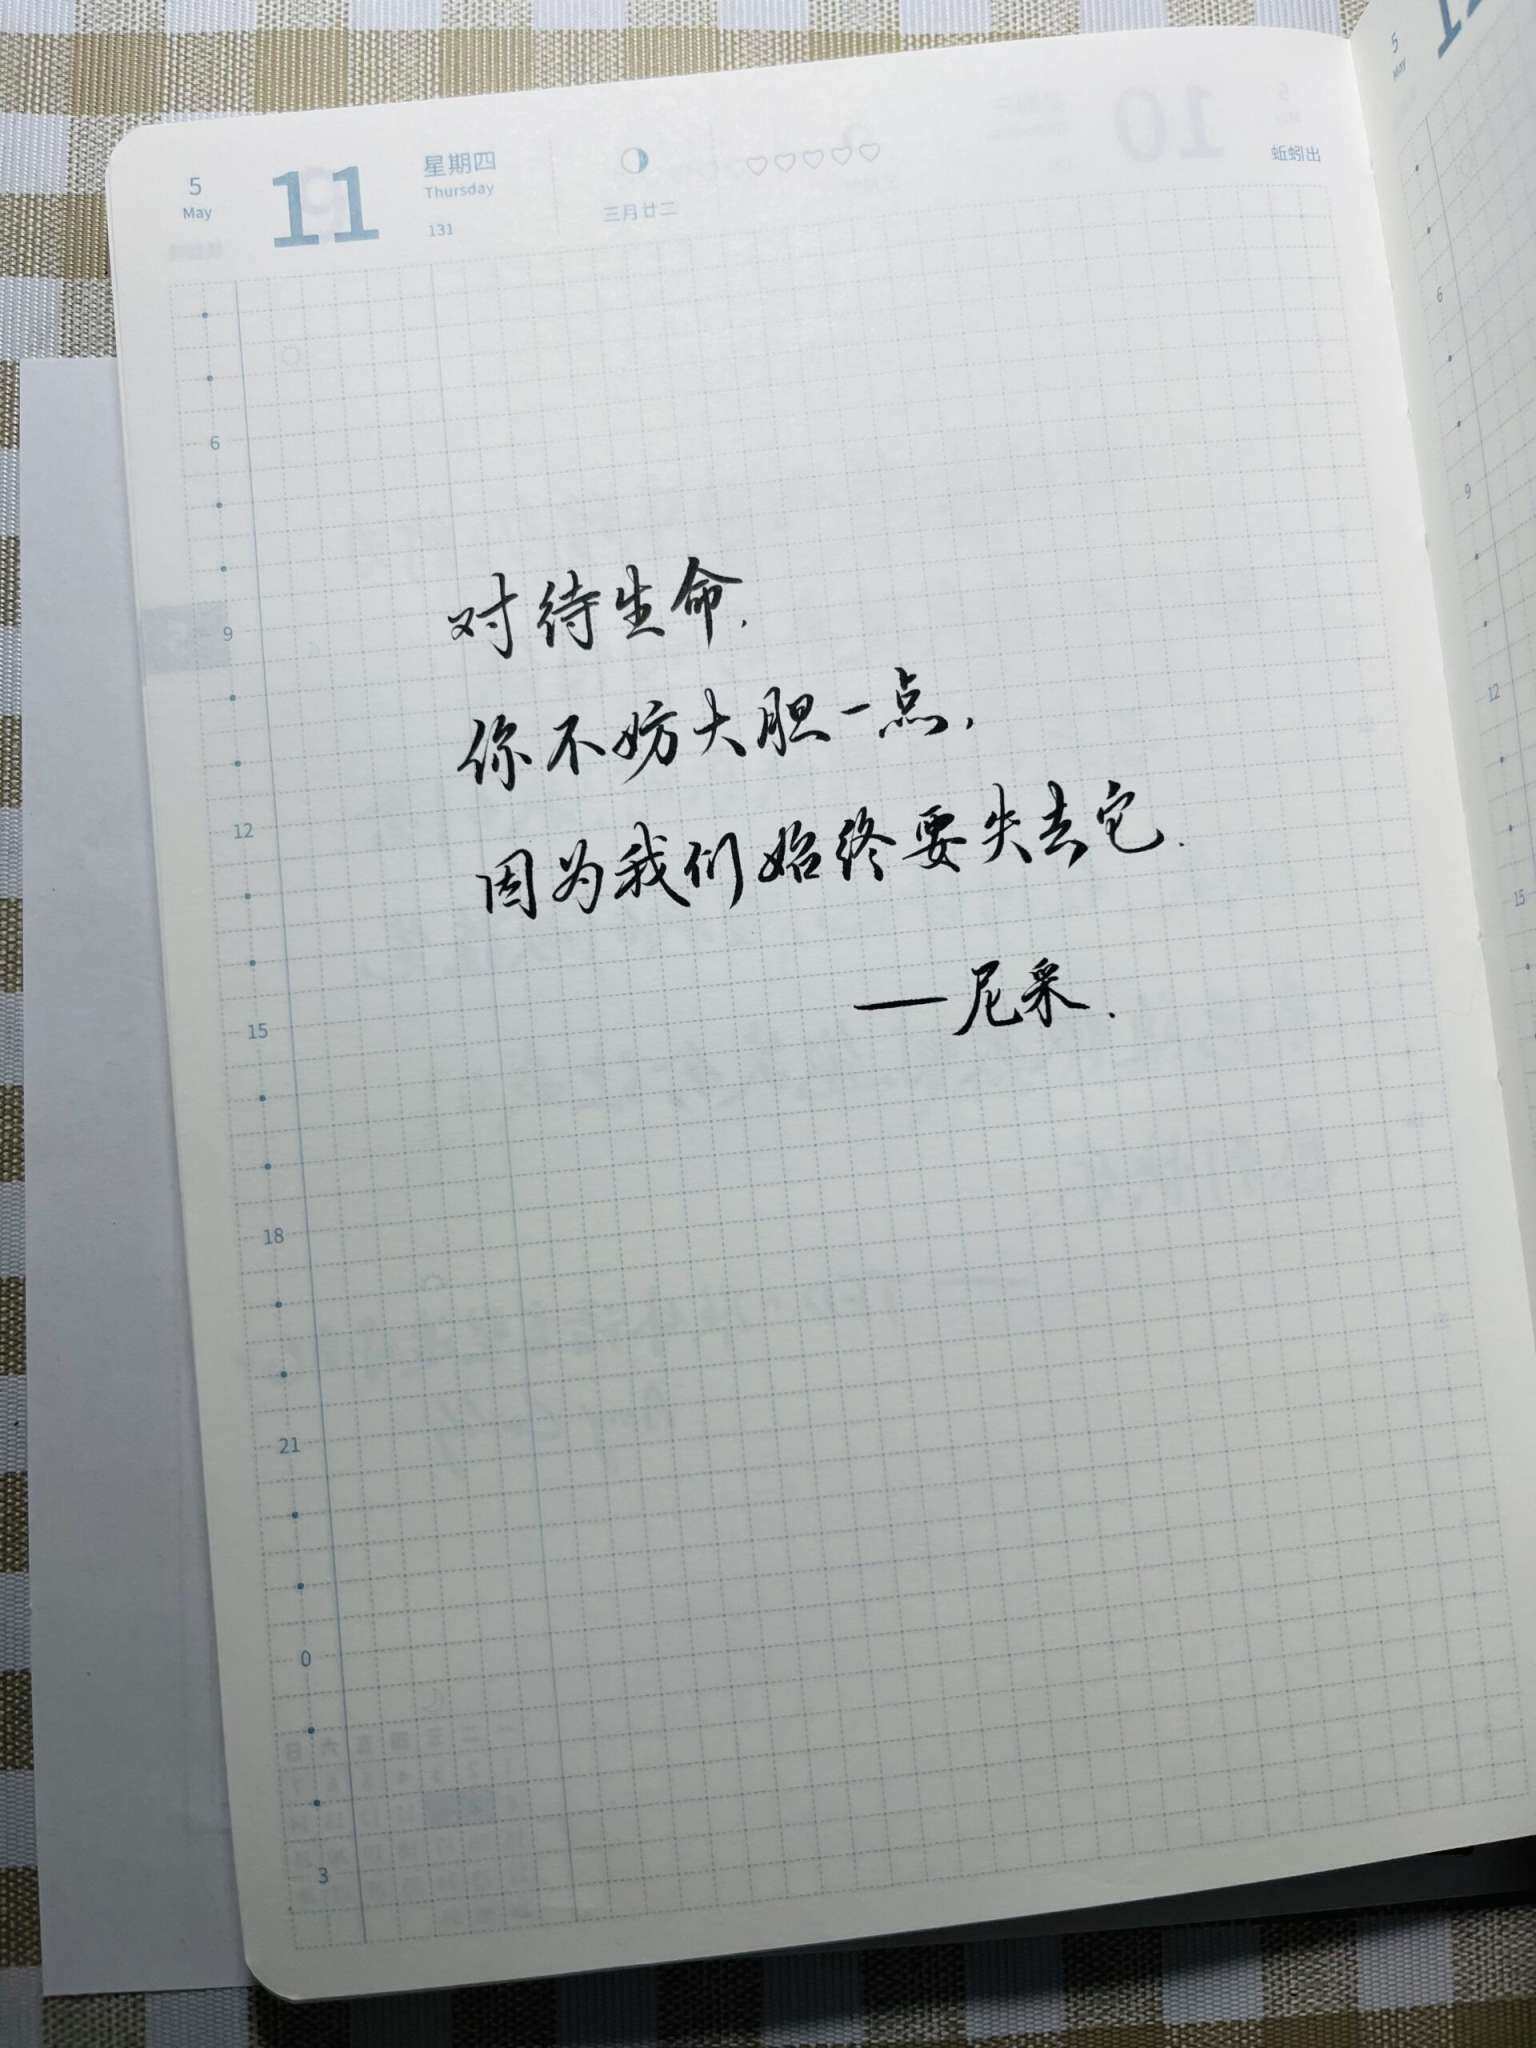 5
May
11
星期四
Thursday
131
三月廿二
10
蚯蚓出
6
9
12
15
18
21
0
3
对待生命.
你不妨大胆一点,
因为我们始终要失去它.
——尼采.
5
May
6
9
12
15